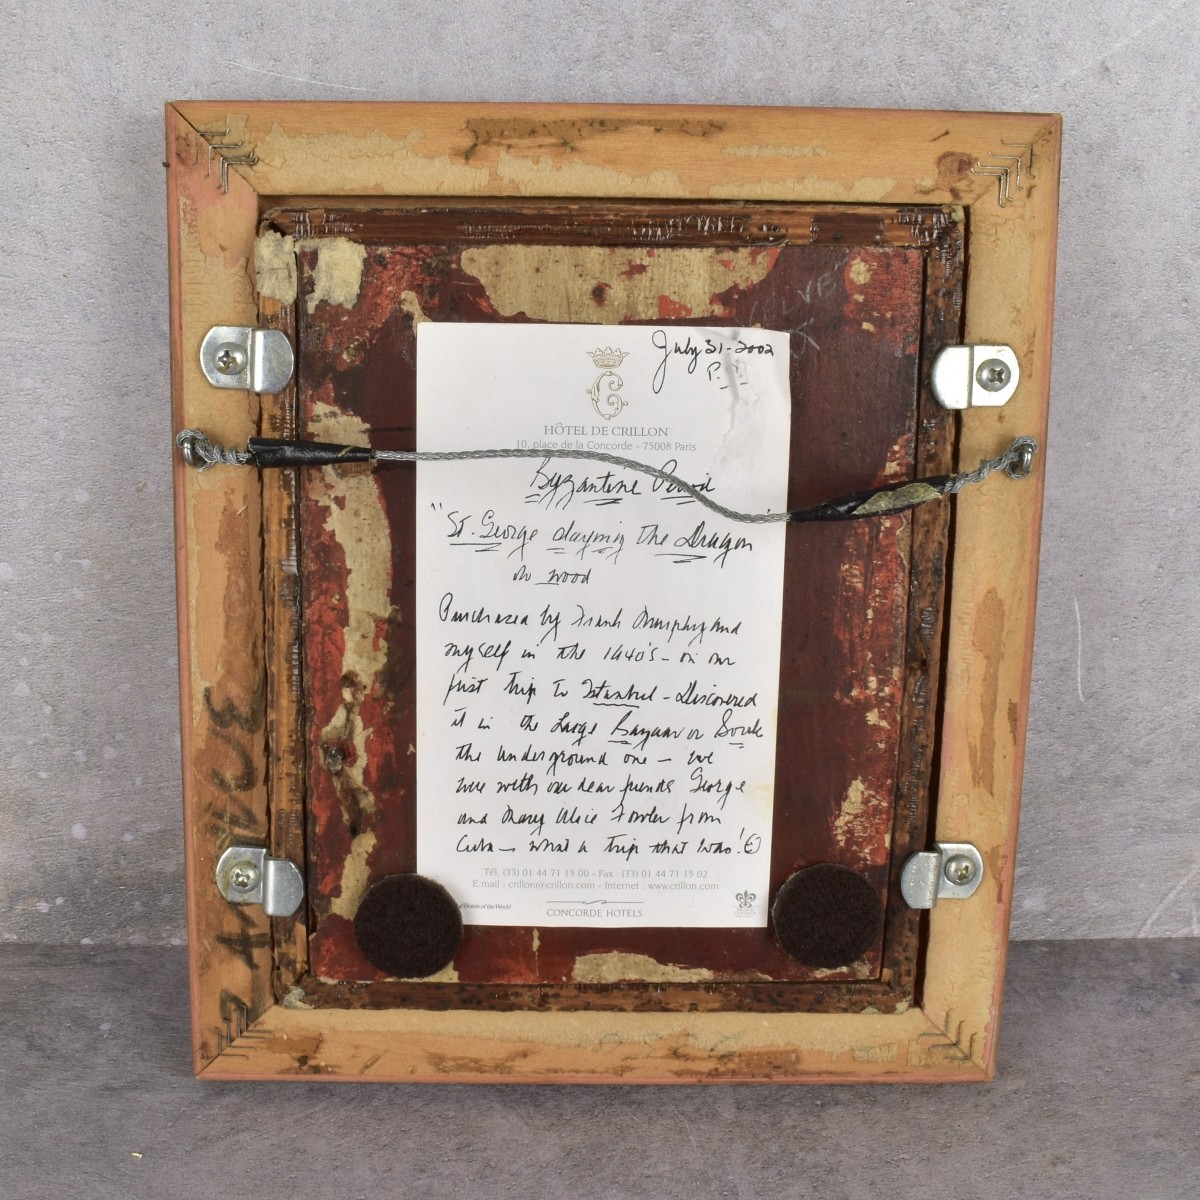 July 31-2002
P.
HÔTEL DE CRILLON
10, place de la Concorde - 75008 Paris
Byzantine Period
"St. George slaying the Dragon"
on wood
Purchased by Frank Murphy and
myself in the 1940's - on our
first trip to Istanbul - Discovered
it in the Large Bazaar or Souk
the underground one - we
were with our dear friends George
and Mary Alice Fowler from
Cuba - what a trip that was!
Tél. (33) 01 44 71 15 00 - Fax : (33) 01 44 71 15 02
E.mail : crillon@crillon.com - Internet : www.crillon.com
Hotels of the World
CONCORDE HOTELS